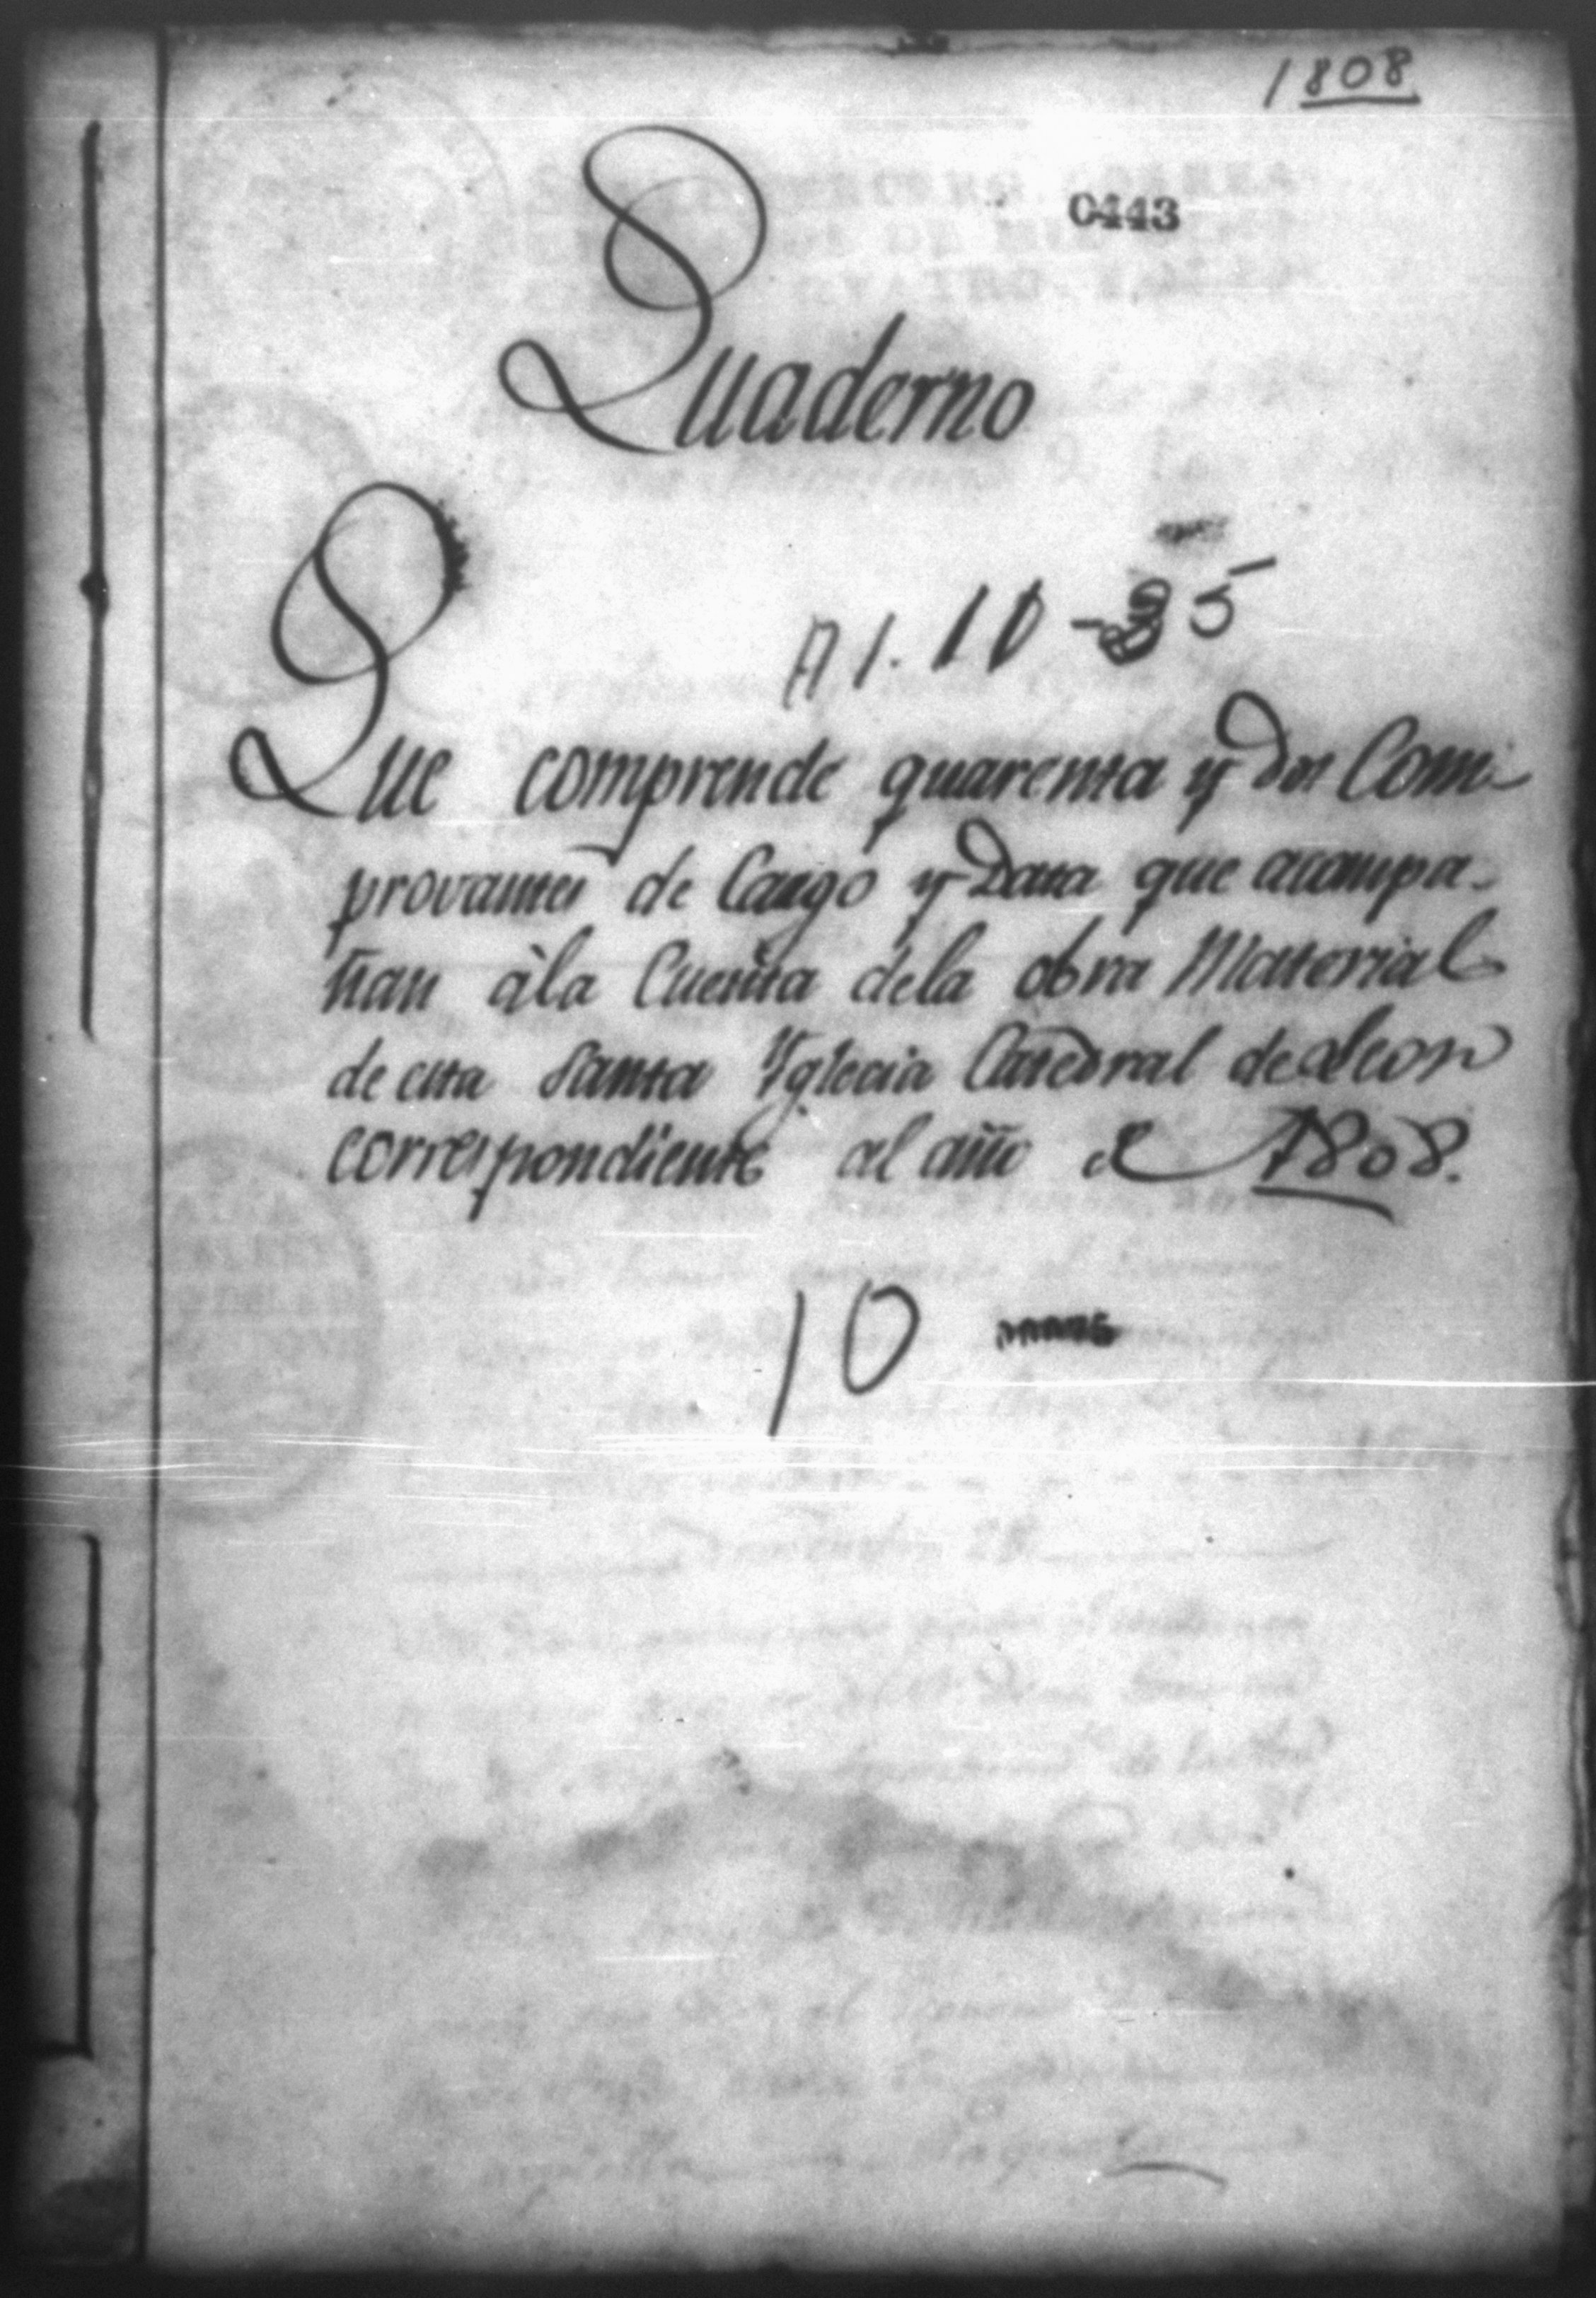 1808
0443
Quaderno
A1. 10-35
Que comprende quarenta y dos Com-
provantes de Cargo y Data que acompa-
ñan à la Cuenta dela obra Material
de esta Santa Yglecia Catedral de Leon
correspondiente al año de 1808.
10